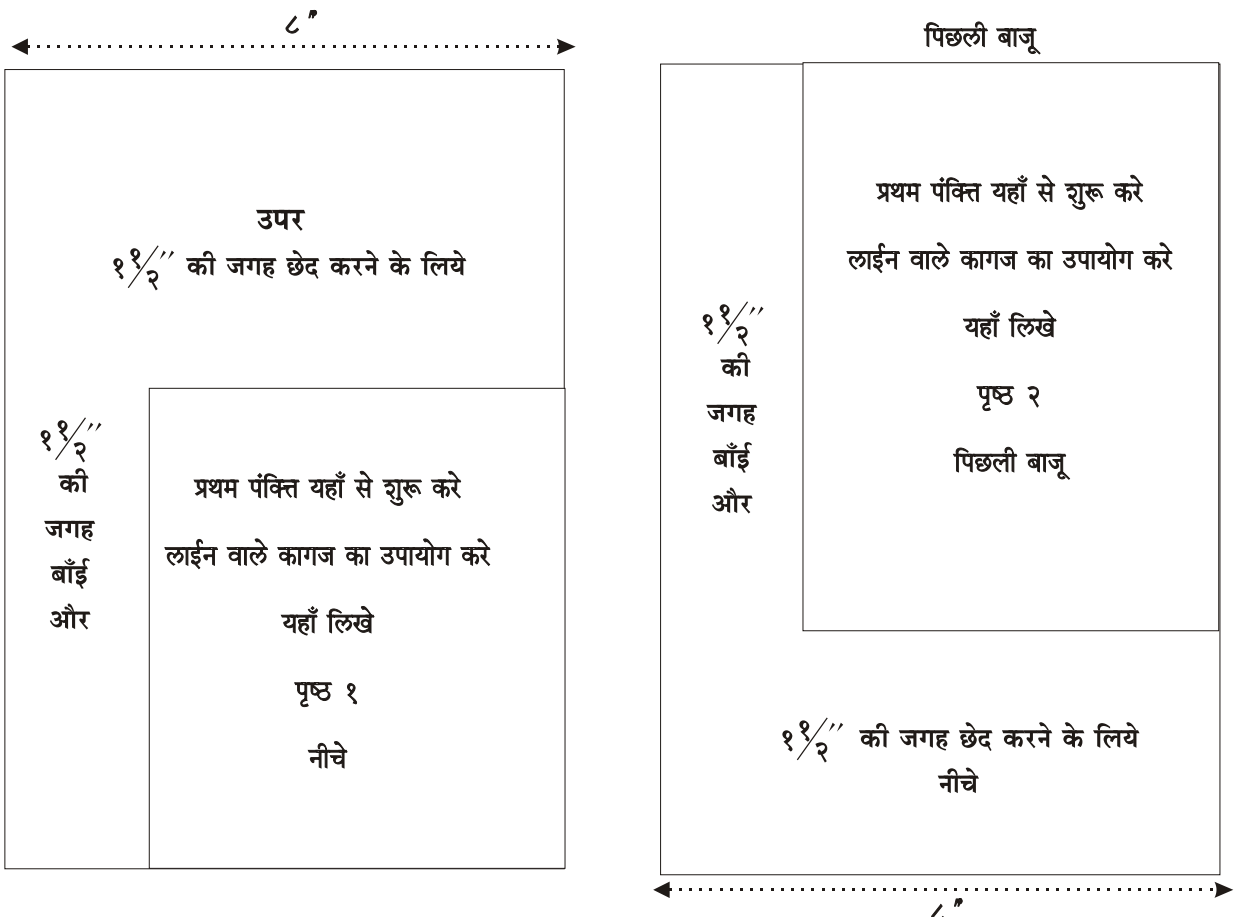 ८"
उपर
१ १/२'' की जगह छेद करने के लिये
१ १/२''
की
जगह
बाँई
और
प्रथम पंक्ति यहाँ से शुरू करे
लाईन वाले कागज का उपायोग करे
यहाँ लिखे
पृष्ठ १
नीचे
पिछली बाजू
१ १/२''
की
जगह
बाँई
और
प्रथम पंक्ति यहाँ से शुरू करे
लाईन वाले कागज का उपायोग करे
यहाँ लिखे
पृष्ठ २
पिछली बाजू
१ १/२'' की जगह छेद करने के लिये
नीचे